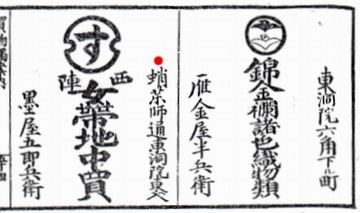 東洞院六角下ル町
錦金襴諸色織物類
雁金屋半兵衛
蛸薬師通東洞院東へ入
す
西陣
女帯地中買
墨屋五郎兵衛